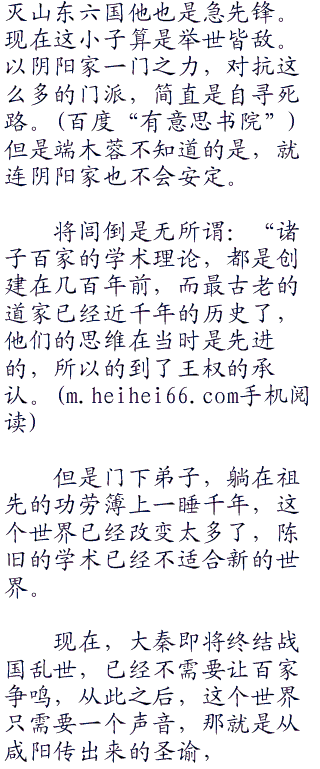 灭山东六国他也是急先锋。
现在这小子算是举世皆敌。
以阴阳家一门之力，对抗这
么多的门派，简直是自寻死
路。(百度“有意思书院”)
但是端木蓉不知道的是，就
连阴阳家也不会安定。
将闾倒是无所谓：“诸
子百家的学术理论，都是创
建在几百年前，而最古老的
道家已经近千年的历史了，
他们的思维在当时是先进
的，所以的到了王权的承
认。(m.heihei66.com手机阅
读)
但是门下弟子，躺在祖
先的功劳簿上一睡千年，这
个世界已经改变太多了，陈
旧的学术已经不适合新的世
界。
现在，大秦即将终结战
国乱世，已经不需要让百家
争鸣，从此之后，这个世界
只需要一个声音，那就是从
咸阳传出来的圣谕，